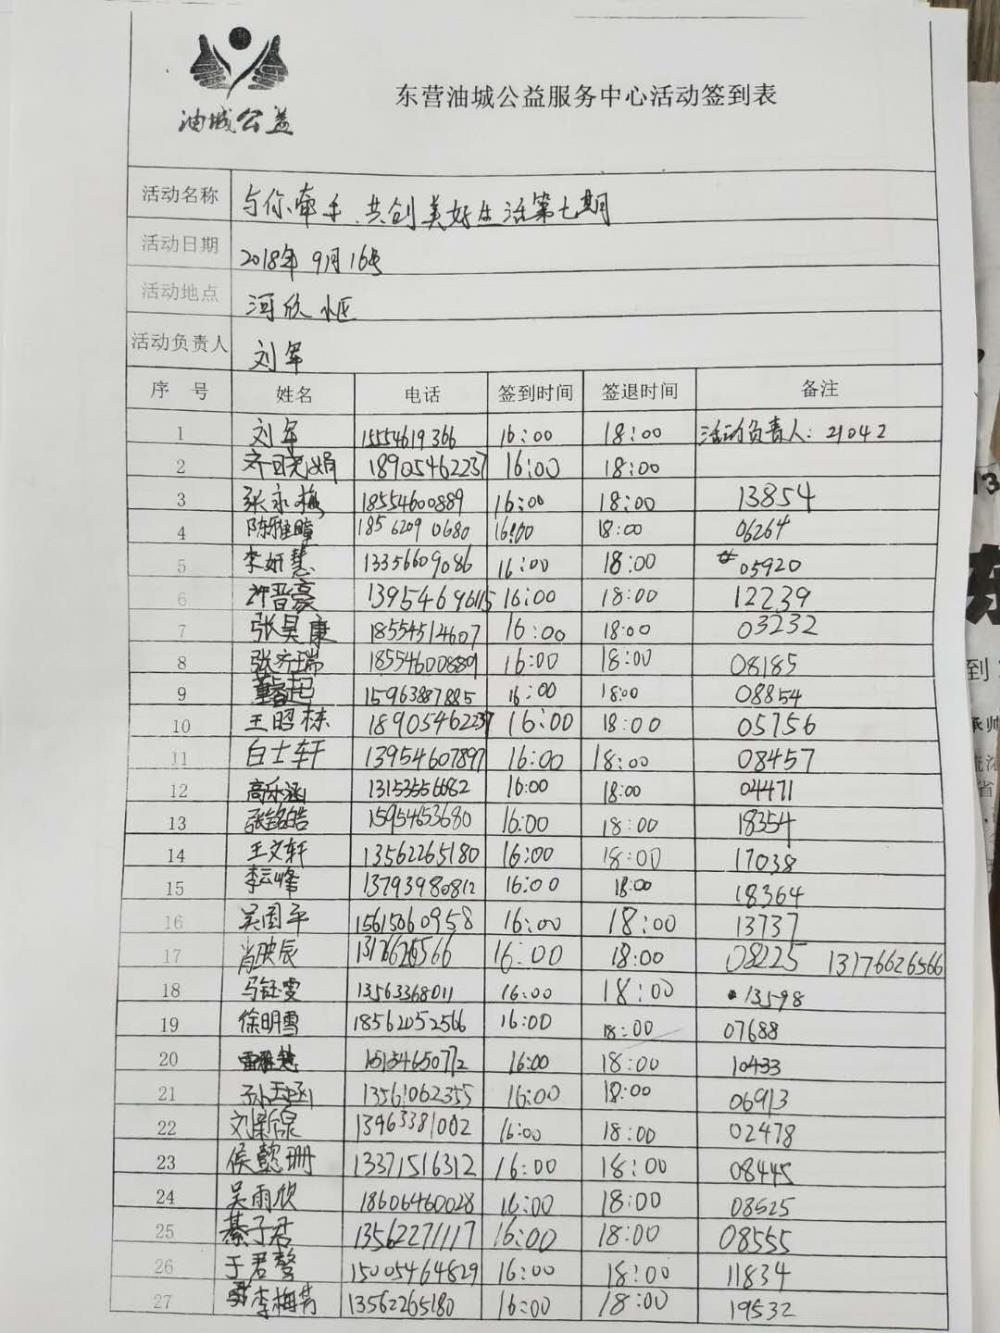 油城公益
东营油城公益服务中心活动签到表
活动名称 与你牵手、共创美好生活第七期
活动日期 2018年9月16号
活动地点 河欣小区
活动负责人 刘军
序号 姓名 电话 签到时间 签退时间 备注
1 刘军 15554619366 16:00 18:00 活动负责人: 21042
2 齐晓娟 18905462237 16:00 18:00
3 张永梅 18554600889 16:00 18:00 13854
4 陈雅暄 18562090680 16:00 18:00 06264
5 李妍慧 13356609086 16:00 18:00 05920
6 许晋豪 13954696115 16:00 18:00 12239
7 张昊康 18554514607 16:00 18:00 03232
8 张齐瑞 18554600889 16:00 18:00 08185
9 15963887885 16:00 18:00 08854
10 王昭栋 18905462237 16:00 18:00 05756
11 白士轩 13954607897 16:00 18:00 08457
12 高乐涵 16:00 18:00 04471
13 张铭皓 15954653680 16:00 18:00 18354
14 王文轩 13562265180 16:00 18:00 17038
15 李云峰 13793980812 16:00 18:00 18364
16 吴国平 15615060958 16:00 18:00 13737
17 肖映辰 16:00 18:00 08225 13176626566
18 马钰雯 13563368011 16:00 18:00 13598
19 徐明雪 18562052566 16:00 18:00 07688
20 16:00 18:00 10433
21 孙玉函 13561062355 16:00 18:00 06913
22 刘新泉 13963381002 16:00 18:00 02478
23 侯懿珊 13371516312 16:00 18:00 08445
24 吴雨欣 18606460028 16:00 18:00 08525
25 綦子君 13562271117 16:00 18:00 08555
26 于君 15005464829 16:00 18:00 11834
27 李梅芳 13562265180 16:00 18:00 19532